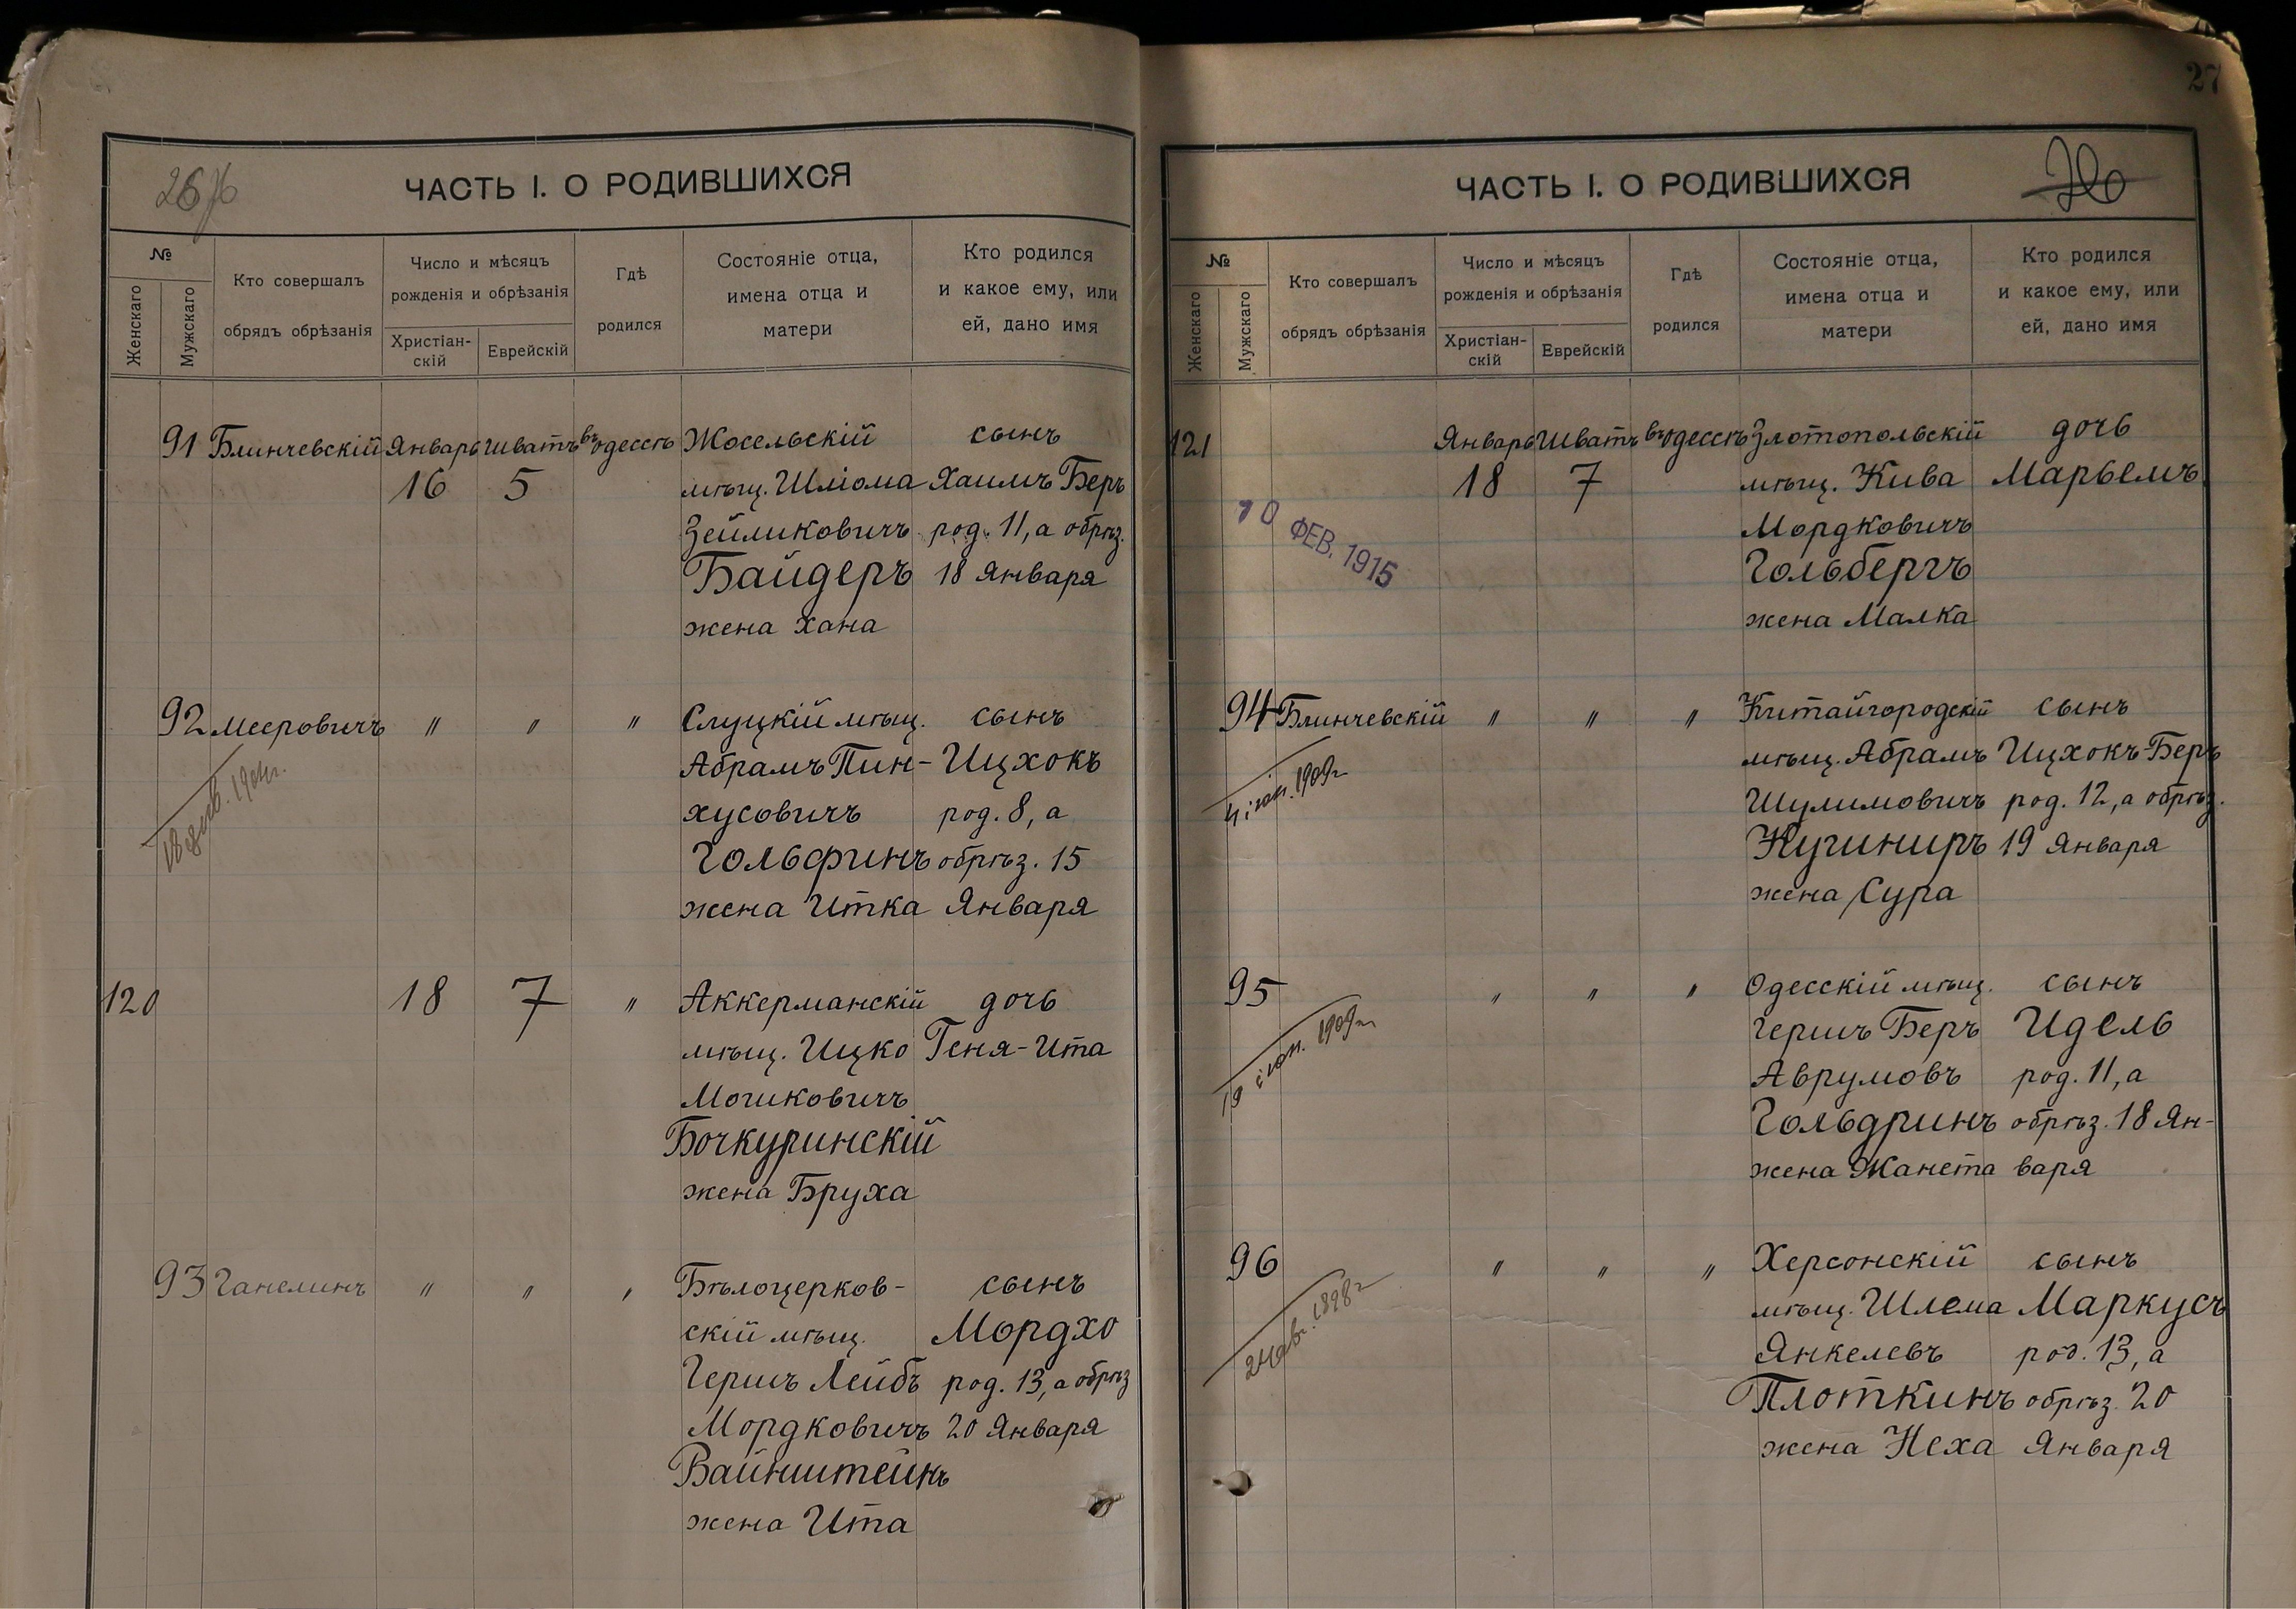 ЧАСТЬ I. О РОДИВШИХСЯ
№
Женскаго
Мужскаго
Кто совершалъ
обрядъ обрѣзанія
Число и мѣсяцъ
рожденія и обрѣзанія
Христіан-
скій
Еврейскій
Гдѣ
родился
Состояніе отца,
имена отца и
матери
Кто родился
и какое ему, или
ей, дано имя
91 Блинчевскій Январь Шватъ въ Одессѣ Жосельскій сынъ
16 5 мѣщ. Шліома Хаимъ Беръ
Зейликовичъ род. 11, а обрѣз.
Байдеръ 18 Января
жена Хана
92 Мееровичъ " " " Слуцкій мѣщ. сынъ
Абрамъ Пин- Ицхокъ
хусовичъ род. 8, а
Гольфинъ обрѣз. 15
жена Итка Января
120 18 7 " Аккерманскій дочь
мѣщ. Ицко Геня-Ита
Мошковичъ
Бочкуринскій
жена Бруха
93 Ганелинъ " " " Бѣлоцерков- сынъ
скій мѣщ. Мордхо
Гершъ Лейбъ род. 13, а обрѣз
Мордковичъ 20 Января
Вайнштейнъ
жена Ита
27
ЧАСТЬ I. О РОДИВШИХСЯ
№
Женскаго
Мужскаго
Кто совершалъ
обрядъ обрѣзанія
Число и мѣсяцъ
рожденія и обрѣзанія
Христіан-
скій
Еврейскій
Гдѣ
родился
Состояніе отца,
имена отца и
матери
Кто родился
и какое ему, или
ей, дано имя
121 Январь Шватъ въ Одессѣ Златопольскій дочь
18 7 мѣщ. Кива Марьемъ
10 ФЕВ. 1915
Мордковичъ
Гольбергъ
жена Малка
94 Блинчевскій " " " Китайгородскій сынъ
мѣщ. Абрамъ Ицхокъ-Беръ
1909г
Шулимовичъ род. 12, а обрѣз.
Кушниръ 19 Января
жена Сура
95 " " " Одесскій мѣщ. сынъ
Гершъ Беръ Идель
1909г
Аврумовъ род. 11, а
Гольдринъ обрѣз. 18 Ян-
жена Жанета варя
96 " " " Херсонскій сынъ
мѣщ. Шлема Маркусъ
Янкелевъ род. 13, а
Плоткинъ обрѣз. 20
жена Неха Января